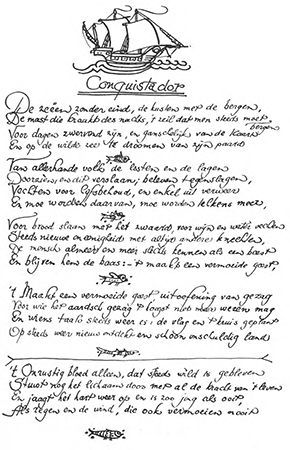 Conquistador
De zeeën zonder eind, de kusten met de bergen,
De mast die kraakt des nachts, 't zeil dat men steeds moet bergen
Voor dagen zwervend zijn, en gansch van de kaart
En op de wilde zee te droomen van zijn paard
Van allerhande volk de lasten en de lagen
Doorzien, en dit verslaan; beleven tegenslagen,
Vechten voor lijfsbehoud, en enkel uit verweer
En moe worden daarvan, moe worden telkens meer,
Voor brood slaan met het zwaard, voor wijn en water vechten
Steeds nieuwe oneenigheid met altijd andere knechten,
De mensch almeer en meer slechts kennen als een beest
En blijven hem de baas: – 't maakt een vermoeide geest,
't Maakt een vermoeide geest, uitoefening van gezag
Voor wie het aardsch gezag 't laagst niet meer weegen mag
En wiens taak steeds weer is: de vlag en 't kruis geplant
Op steeds weer nieuw ontdekt en schoon onschuldig land
't Onrustig bloed alleen, dat steeds wild is gebleven
Stuwt nog het lichaam door met al de kracht van 't leven
En jaagt het hart weer op en is zoo jong als ooit,
Als regen en de wind, die ook vermoeien nooit